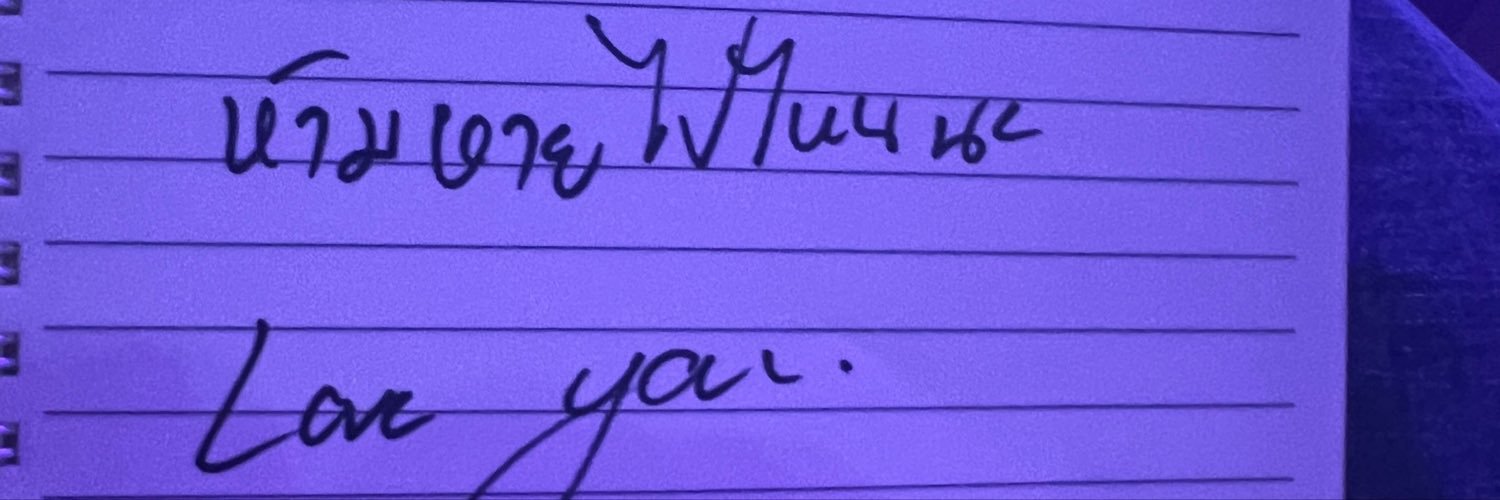 ห้ามหายไปไหนนะ
Love you.